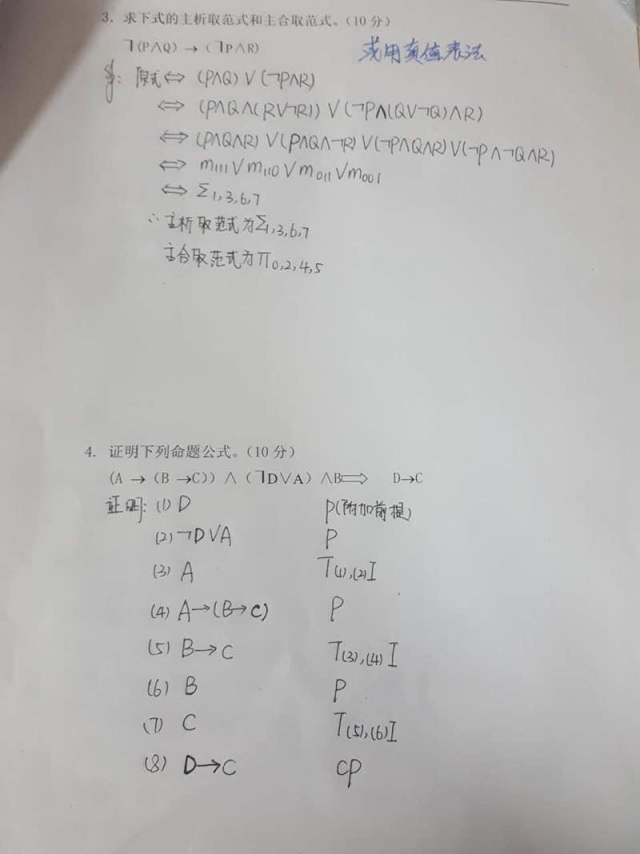 3. 求下式的主析取范式和主合取范式。(10分)
¬(P∧Q) → (¬P∧R)
或用真值表法
解: 原式⇔ (P∧Q)∨(¬P∧R)
⇔ (P∧Q∧(R∨¬R))∨(¬P∧(Q∨¬Q)∧R)
⇔ (P∧Q∧R)∨(P∧Q∧¬R)∨(¬P∧Q∧R)∨(¬P∧¬Q∧R)
⇔ m111∨m110∨m011∨m001
⇔ Σ1,3,6,7
∴主析取范式为Σ1,3,6,7
主合取范式为π0,2,4,5
4. 证明下列命题公式。(10分)
(A → (B →C)) ∧ (¬D∨A) ∧B⟹ D→C
证明: (1) D P(附加前提)
(2) ¬D∨A P
(3) A T(1),(2)I
(4) A→(B→C) P
(5) B→C T(3),(4)I
(6) B P
(7) C T(5),(6)I
(8) D→C CP